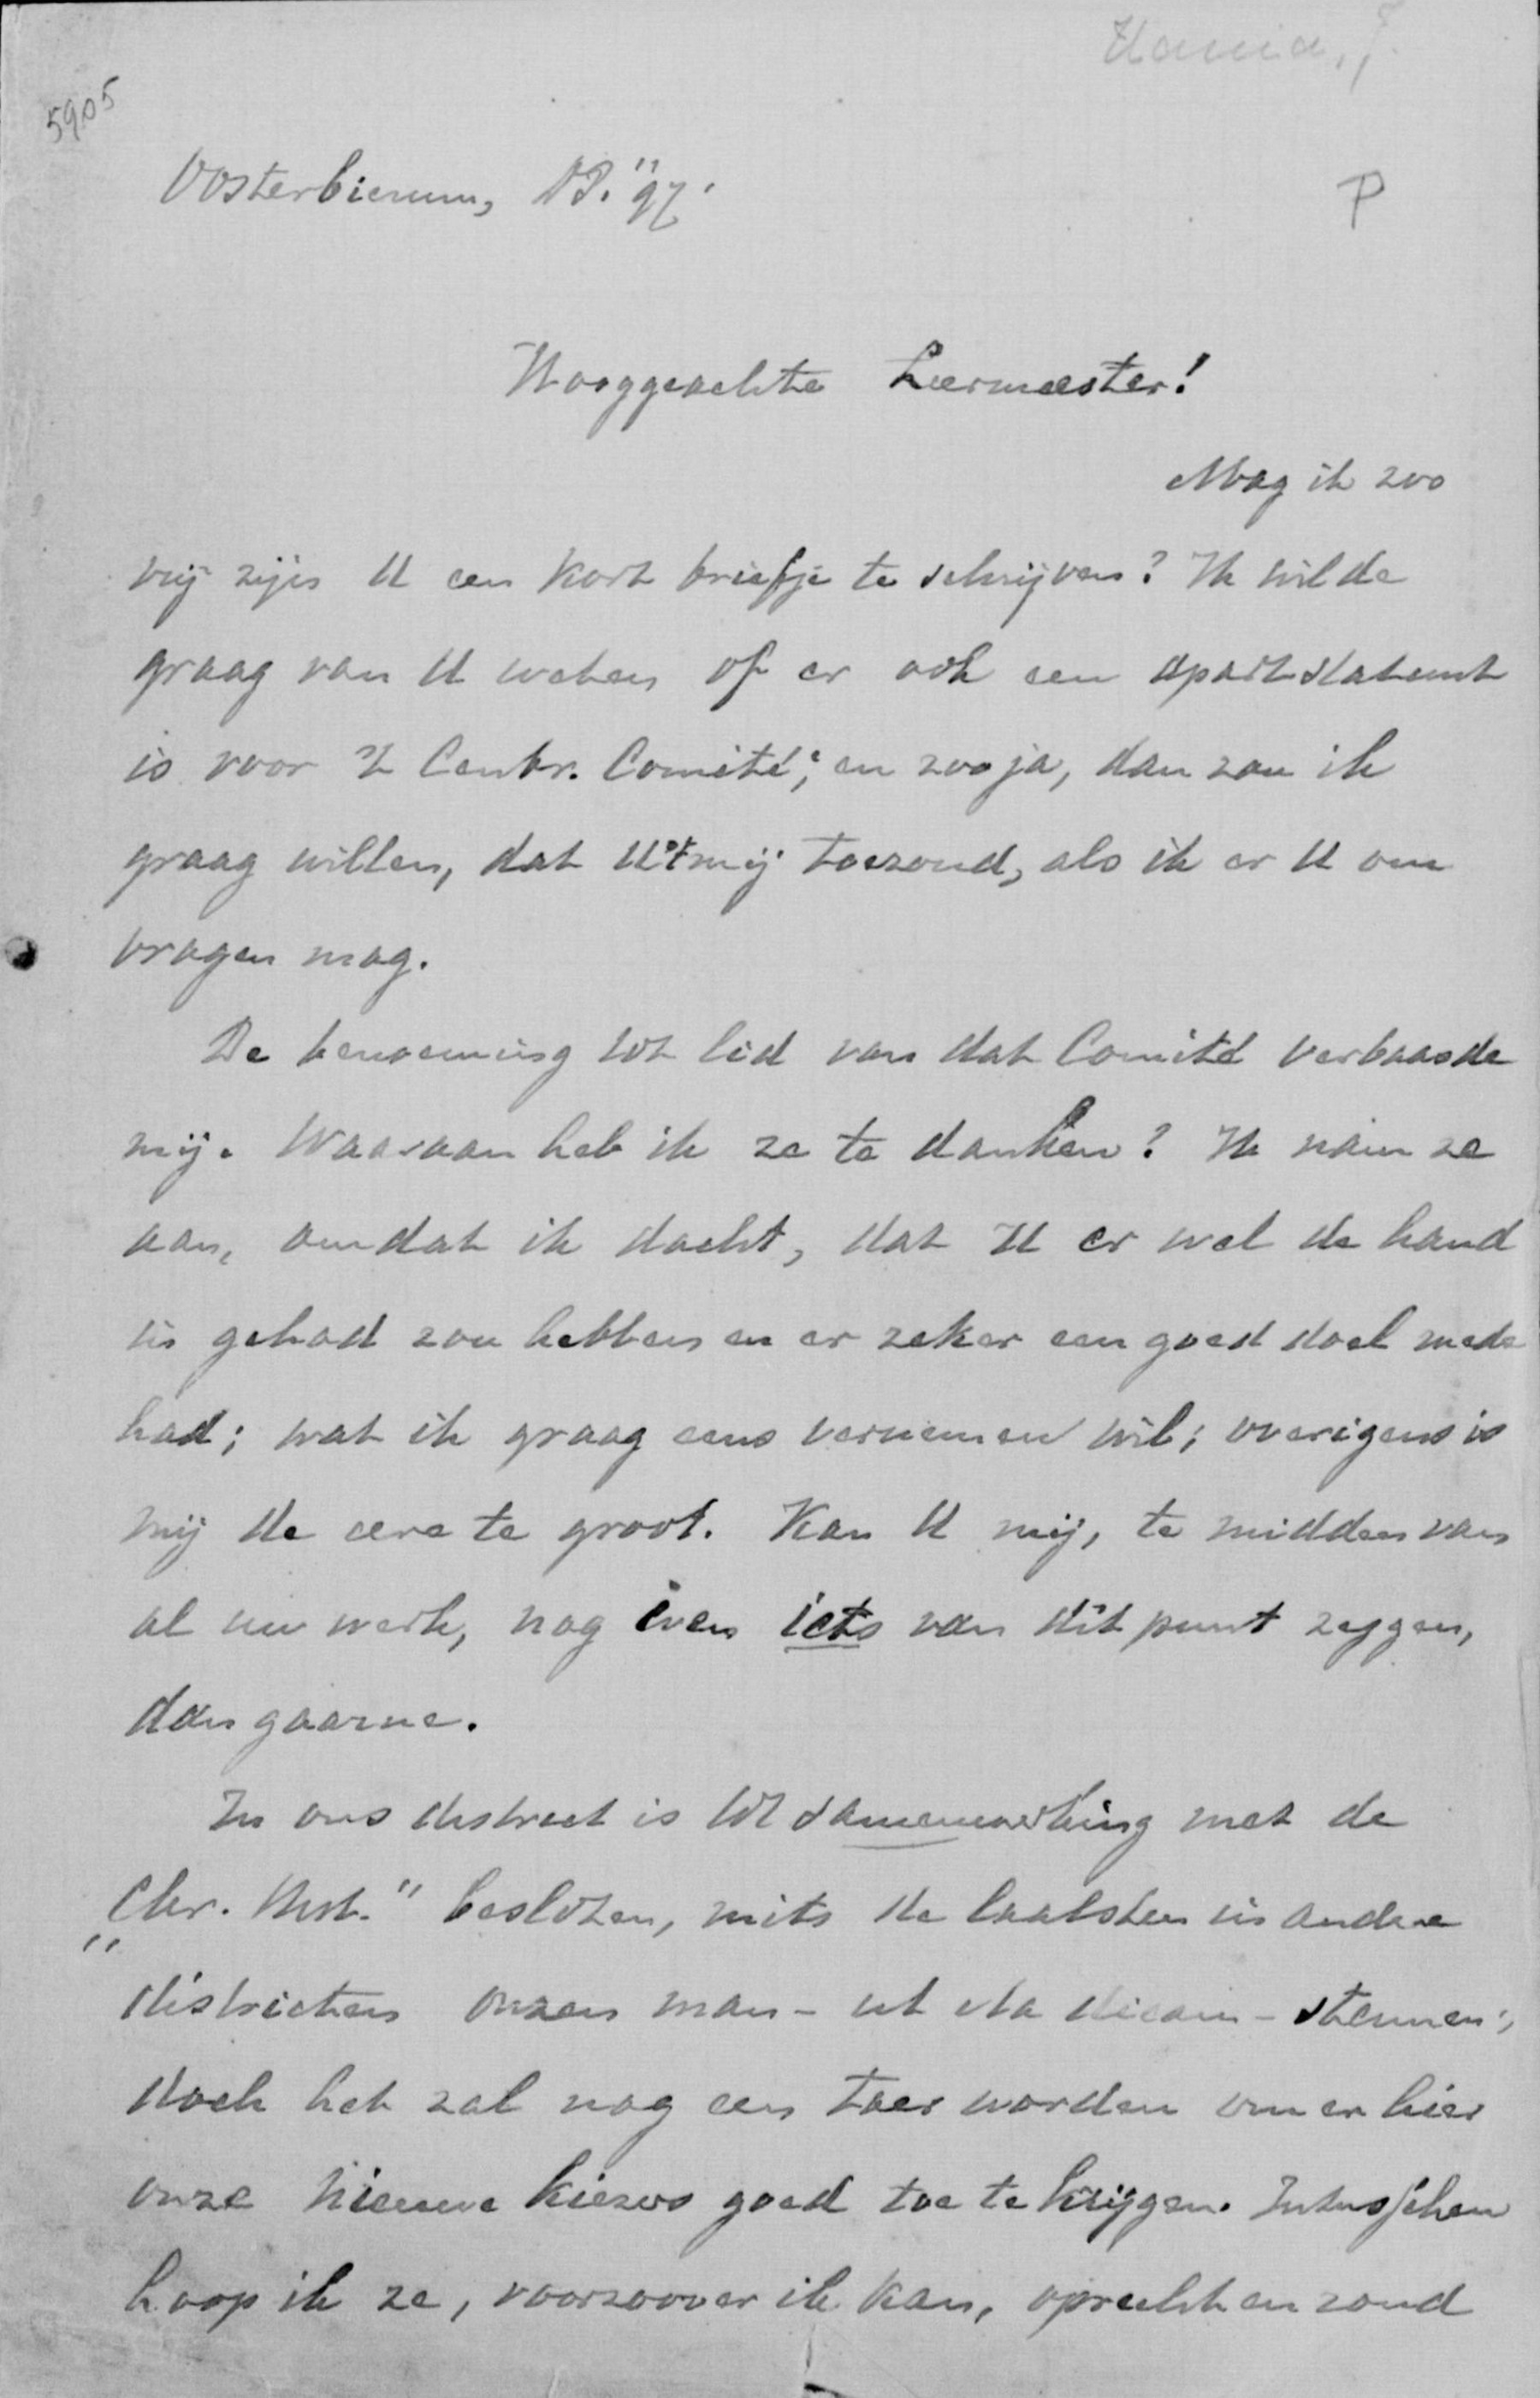 Hania, J.
5905
Oosterbierum, '97.
P
Hooggeachte Leermeester!
Mag ik zoo
vrij zijn U een kort briefje te schrijven? Ik wilde
graag van U weten of er ook een apart statuut
is voor 't Centr. Comité; en zoo ja, dan zou ik
graag willen, dat U 't mij toezond, als ik er U om
vragen mag.
De benoeming tot lid van dat Comité verbaasde
mij. Waaraan heb ik ze te danken? Ik nam ze
aan, omdat ik dacht, dat U er wel de hand
in gehad zou hebben en er zeker een goed doel mede
had; wat ik graag eens vernemen wil; overigens is
mij de eere te groot. Kan U mij, te midden van
al uw werk, nog even iets van dit punt zeggen,
dan gaarne.
In ons district is tot samenwerking met de
„Chr. Hist." besloten, mits de laatsten in andere
districten onzen man - ut ita dicam - steunen;
doch het zal nog een toer worden om er hier
onze nieuwe kiezers goed toe te krijgen. Intusschen
hoop ik ze, voorzoover ik kan, oprecht en rond